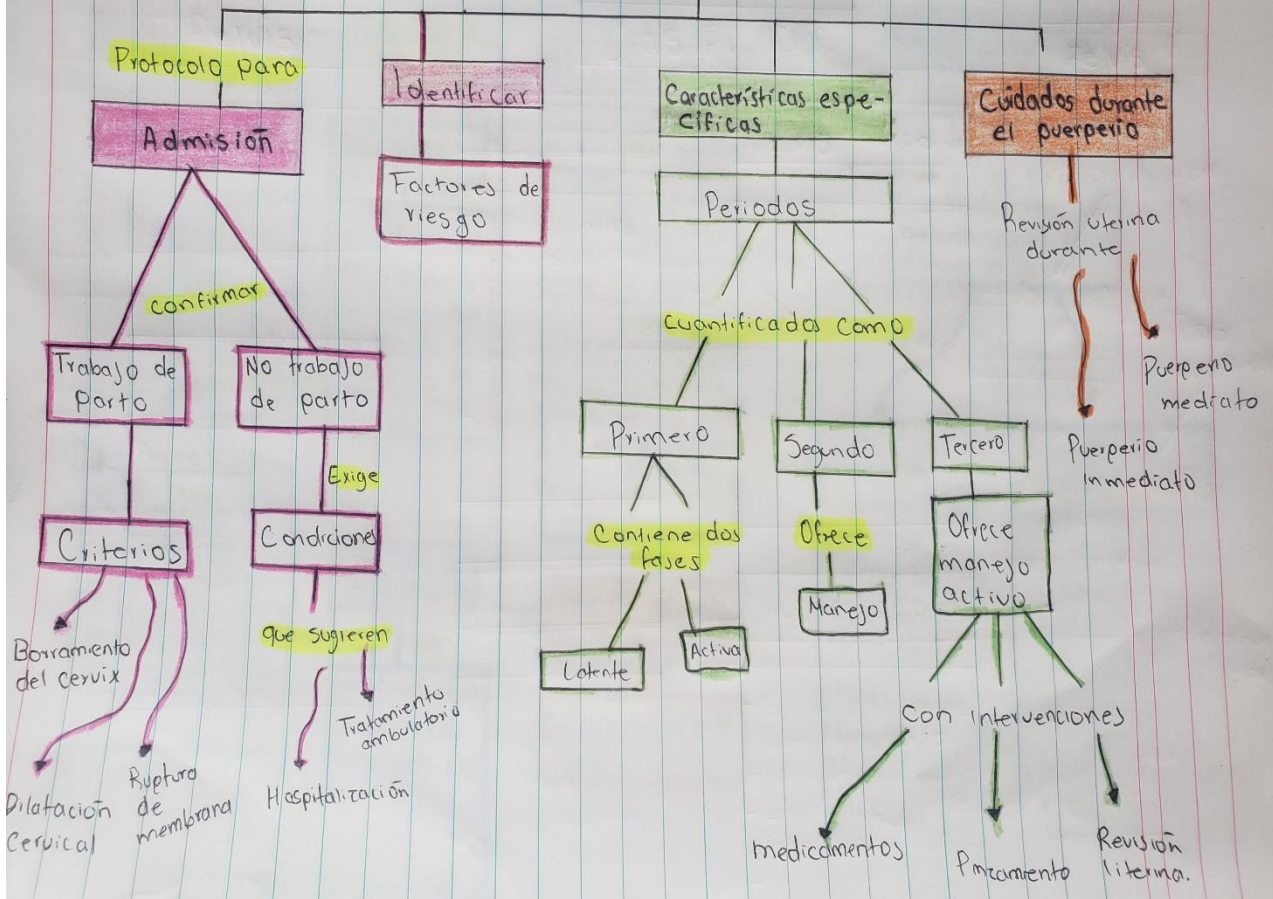 Protocolo para
Admisión
confirmar
Trabajo de
Parto
No trabajo
de parto
Exige
Criterios
Condiciones
Borramiento
del cervix
Dilatación
Cervical
Ruptura
de
membrana
que sugieren
Hospitalización
Tratamiento
ambulatorio
Identificar
Factores de
riesgo
Características espe-
cíficas
Periodos
cuantificados como
Primero
Segundo
Tercero
Contiene dos
fases
Latente
Activa
Ofrece
Manejo
Ofrece
manejo
activo
con intervenciones
medicamentos
Pinzamiento
Revisión
Uterina.
Cuidados durante
el puerperio
Revisión uterina
durante
Puerperio
inmediato
Puerperio
mediato